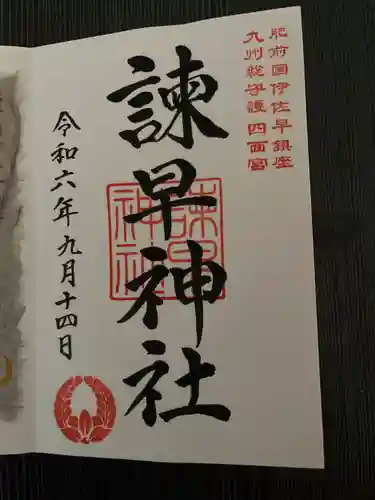 肥前国伊佐早鎮座
九州総守護四面宮
諫早神社
諫早神社
令和六年九月十四日